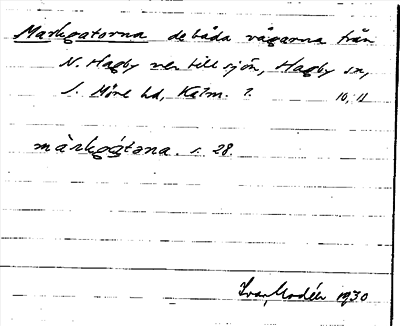 Markgatorna de båda vägarna från
N. Hagby ner till sjön, Hagby sn,
S. Möre hd, Kalm. l. 10, 11
màrkgátəna. s. 28.
Ivar Modéer 1930